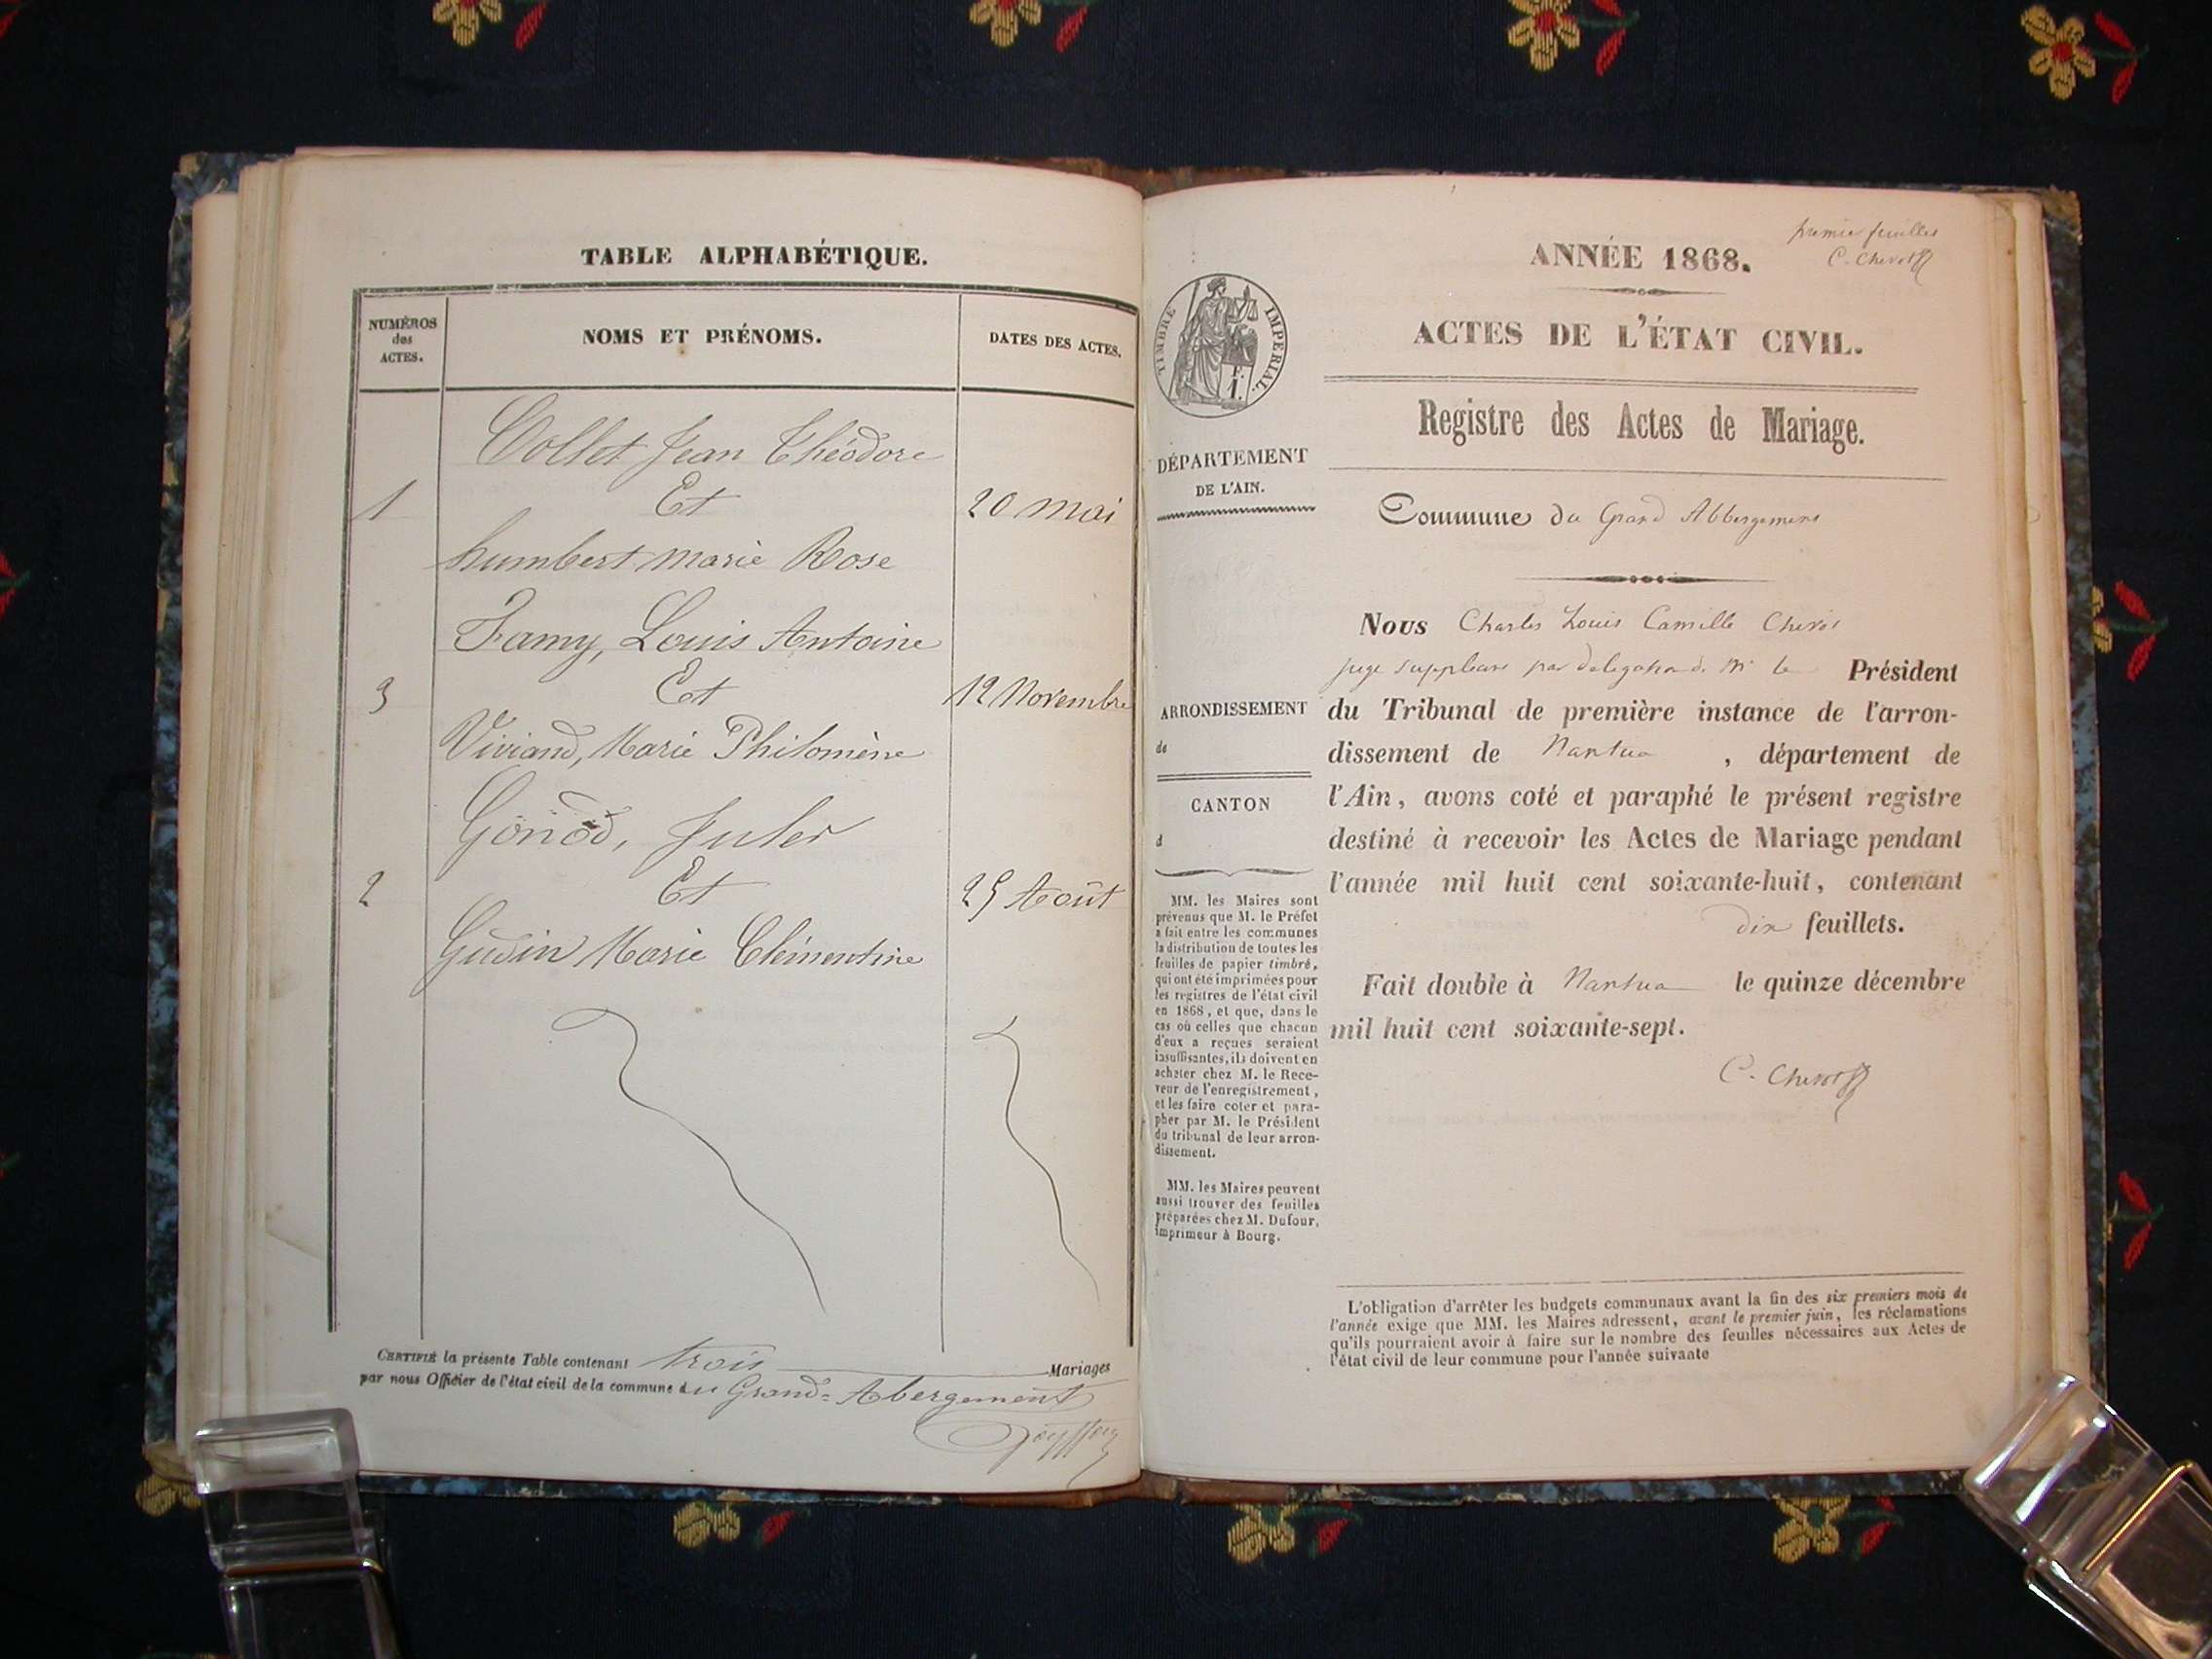 TABLE ALPHABÉTIQUE.
NUMÉROS
des
ACTES.
NOMS ET PRÉNOMS.
DATES DES ACTES.
Collet Jean Théodore
1 Et 20 mai
humbert marie Rose
Famy, Louis Antoine
3 Et 12 Novembre
Viviand, Marie Philomène
Gonod, Jules
2 Et 25 Août
Gudin Marie Clémentine
CERTIFIÉ la présente Table contenant trois Mariages
par nous Officier de l'état civil de la commune du Grand-Abergement
premier feuillet
C. Chevot
ANNÉE 1868.
ACTES DE L'ÉTAT CIVIL.
Registre des Actes de Mariage.
TIMBRE IMPÉRIAL.
DÉPARTEMENT
DE L'AIN.
Commune du Grand Abbergement
Nous Charles Louis Camille Chevot
juge suppléant par délégation de Mr le Président
du Tribunal de première instance de l'arron-
dissement de Nantua, département de
l'Ain, avons coté et paraphé le présent registre
destiné à recevoir les Actes de Mariage pendant
l'année mil huit cent soixante-huit, contenant
dix feuillets.
Fait double à Nantua le quinze décembre
mil huit cent soixante-sept.
C. Chevot
ARRONDISSEMENT
de
CANTON
d
MM. les Maires sont
prévenus que M. le Préfet
a fait entre les communes
la distribution de toutes les
feuilles de papier timbré,
qui ont été imprimées pour
les registres de l'état civil
en 1868, et que, dans le
cas où celles que chacun
d'eux a reçues seraient
insuffisantes, ils doivent en
acheter chez M. le Rece-
veur de l'enregistrement,
et les faire coter et para-
pher par M. le Président
du tribunal de leur arron-
dissement.
MM. les Maires peuvent
aussi trouver des feuilles
préparées chez M. Dufour,
imprimeur à Bourg.
L'obligation d'arrêter les budgets communaux avant la fin des six premiers mois de
l'année exige que MM. les Maires adressent, avant le premier juin, les réclamations
qu'ils pourraient avoir à faire sur le nombre des feuilles nécessaires aux Actes de
l'état civil de leur commune pour l'année suivante